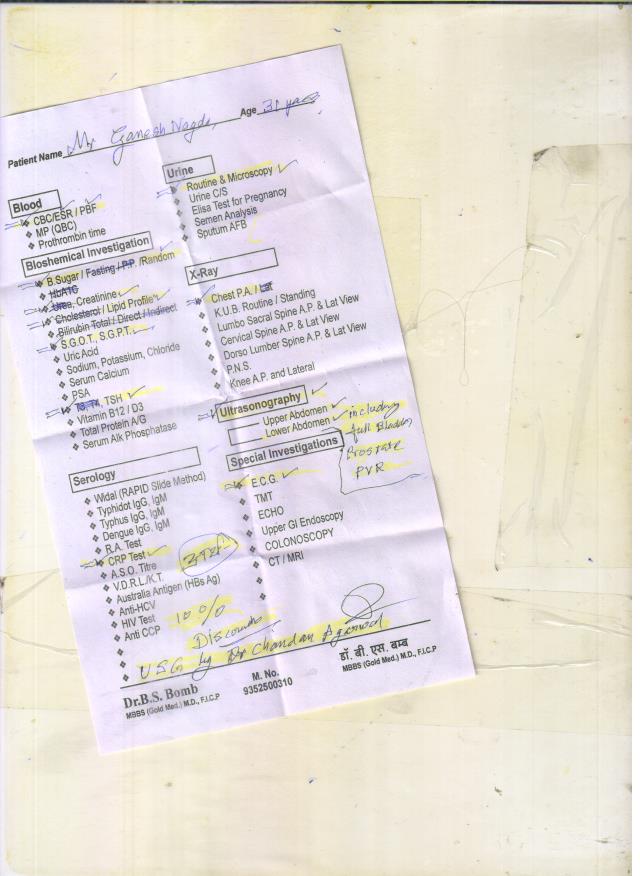 Patient Name Mr Ganesh Nagda Age 31 years
Blood
CBC/ESR / PBF
MP (QBC)
Prothrombin time
Bloshemical Investigation
B.Sugar / Fasting / P.P. /Random
HbA1C
Urea, Creatinine
Cholesterol / Lipid Profile
Bilirubin Total / Direct / Indirect
S.G.O.T., S.G.P.T.
Uric Acid
Sodium, Potassium, Chloride
Serum Calcium
PSA
T3, T4, TSH
Vitamin B12 / D3
Total Protein A/G
Serum Alk Phosphatase
Serology
Widal (RAPID Slide Method)
Typhidot IgG, IgM
Typhus IgG, IgM
Dengue IgG, IgM
R.A. Test
CRP Test
A.S.O. Titre
V.D.R.L./K.T.
Australia Antigen (HBs Ag)
Anti-HCV
HIV Test
Anti CCP
Urine
Routine & Microscopy
Urine C/S
Elisa Test for Pregnancy
Semen Analysis
Sputum AFB
X-Ray
Chest P.A. / Lat
K.U.B. Routine / Standing
Lumbo Sacral Spine A.P. & Lat View
Cervical Spine A.P. & Lat View
Dorso Lumber Spine A.P. & Lat View
P.N.S.
Knee A.P. and Lateral
Ultrasonography
Upper Abdomen
Lower Abdomen including
full Bladder
Prostate
PVR
Special Investigations
E.C.G.
TMT
ECHO
Upper GI Endoscopy
COLONOSCOPY
CT / MRI
10%
Discount
USG by Dr Chandan Agarwal
Dr.B.S. Bomb
MBBS (Gold Med.) M.D., F.I.C.P
M. No.
9352500310
डॉ. बी. एस. बम्ब
MBBS (Gold Med.) M.D., F.I.C.P